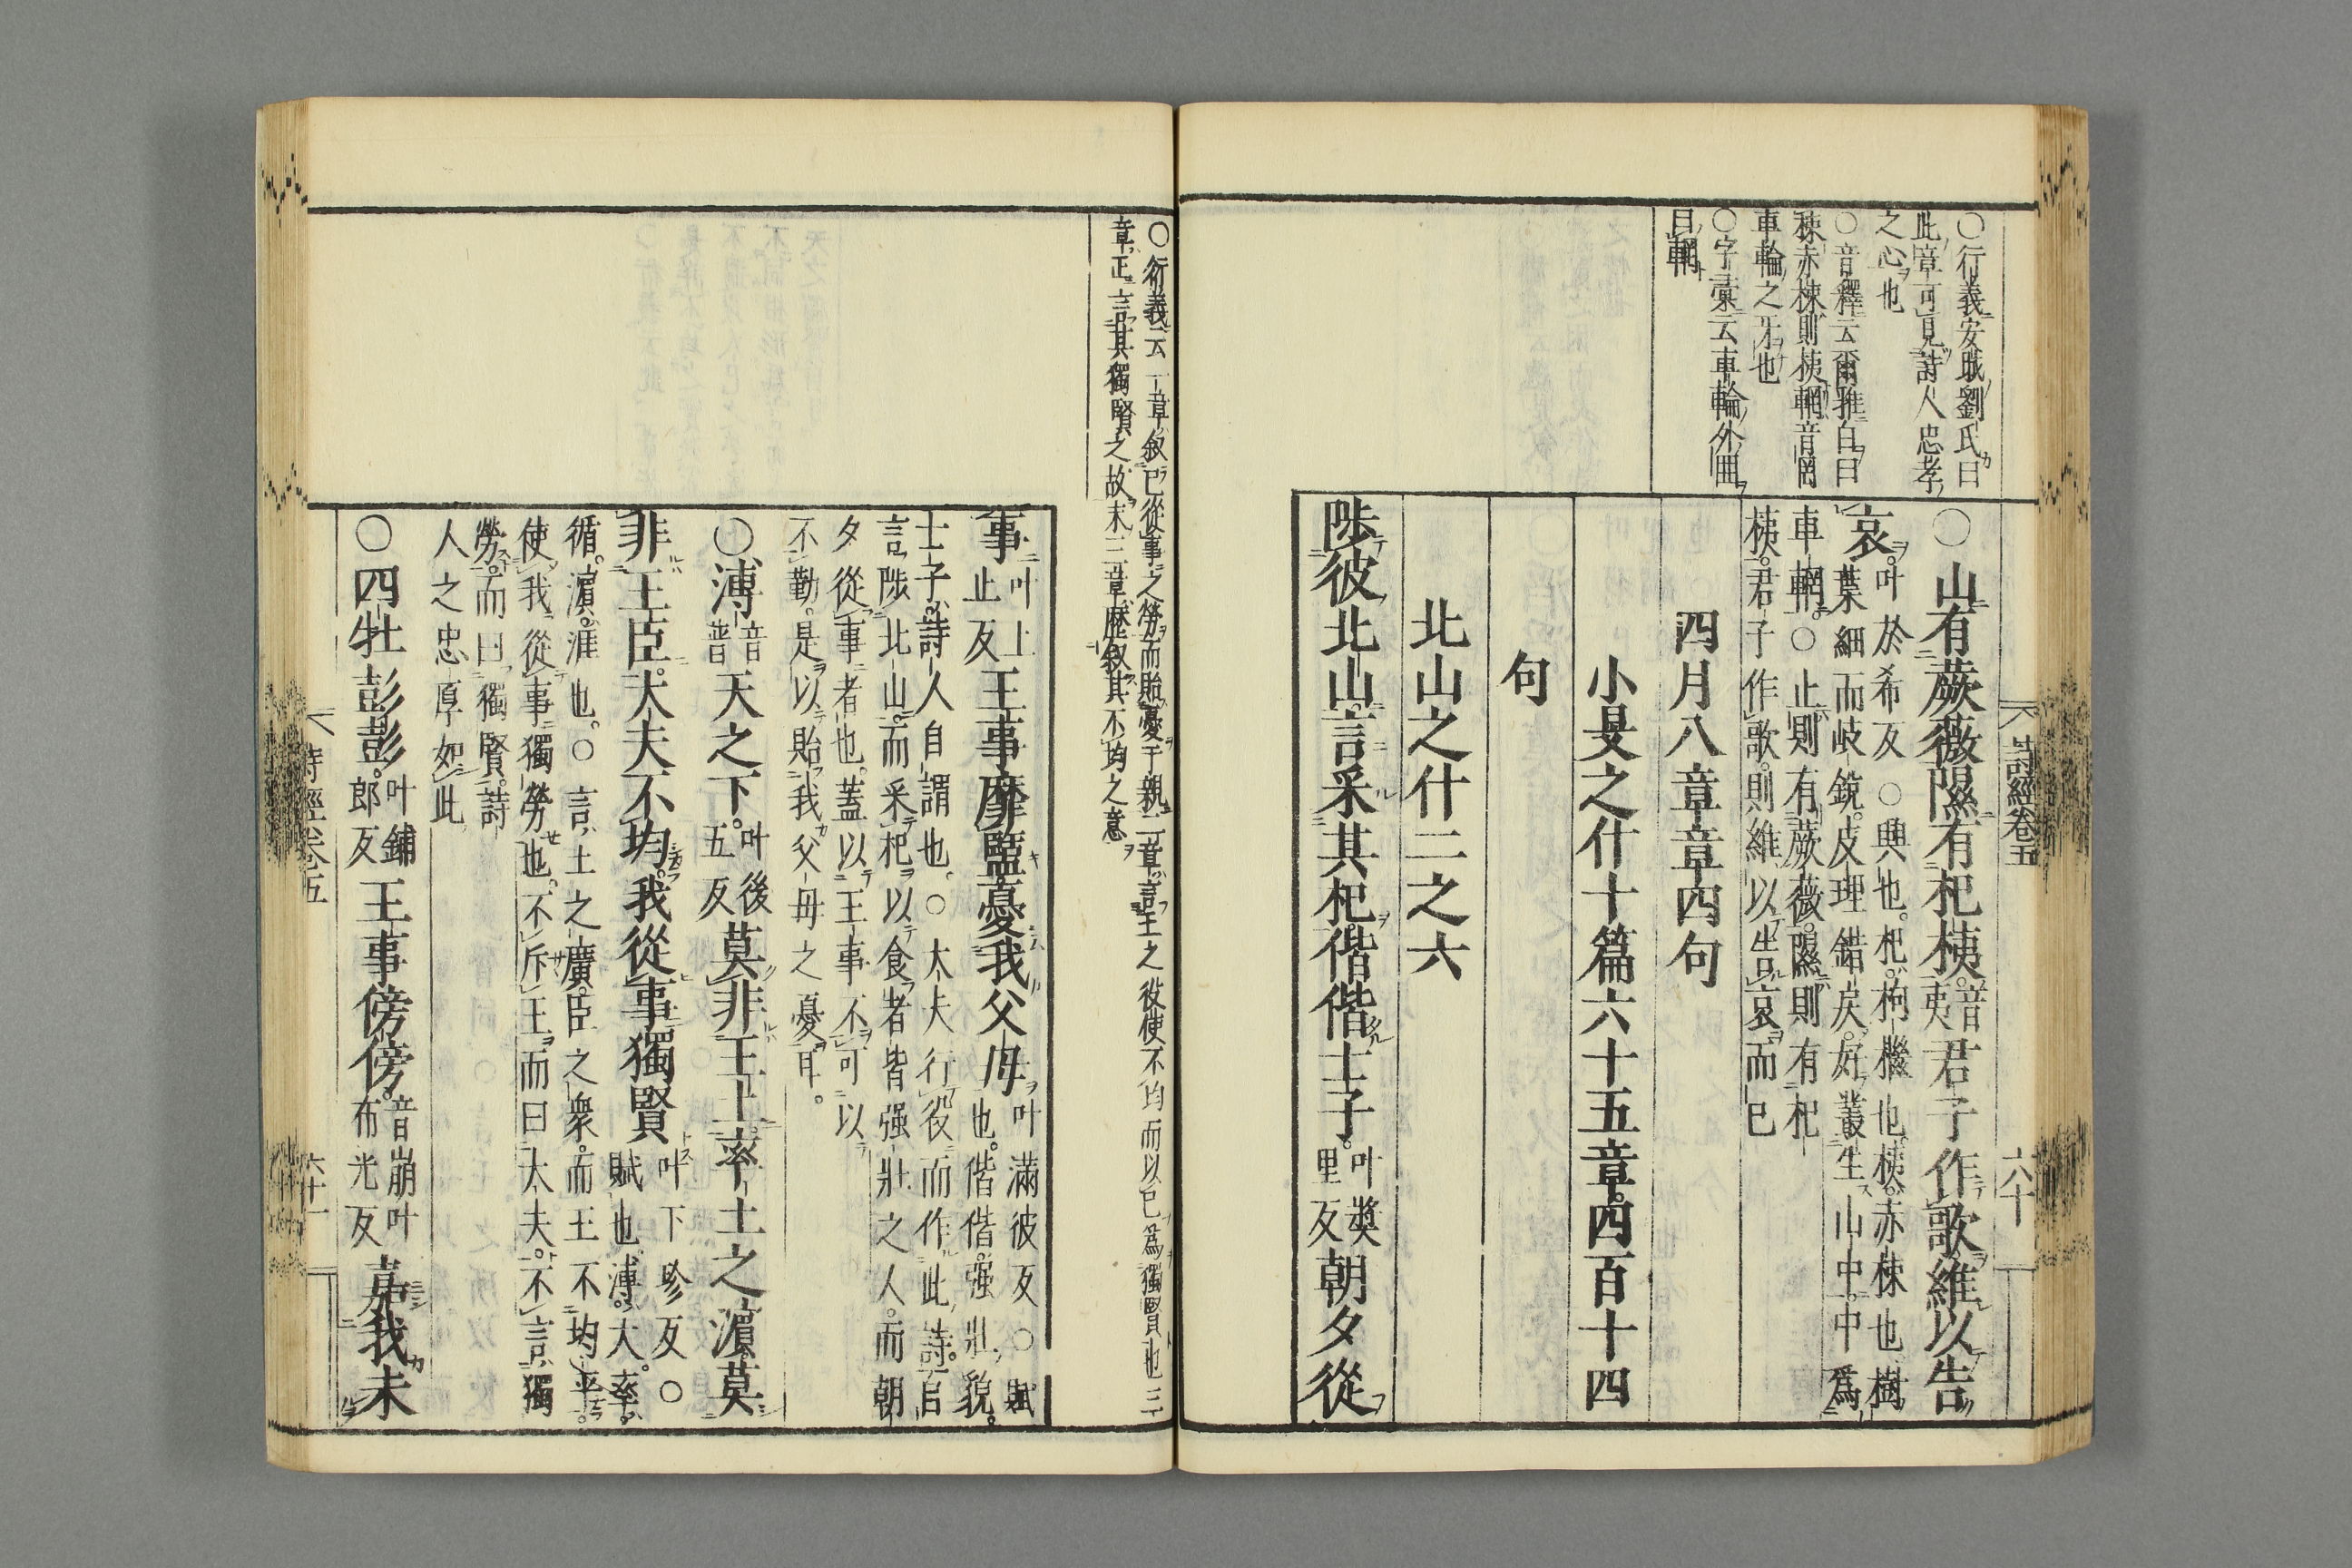 ○行義安成劉氏曰
此章可見詩人忠孝
之心也
○音釋云爾雅白曰
棟赤棟則桋輞音罔
車輪之牙也
○字彙云車輪外圍
曰輞
詩經卷五
六十
○山有蕨薇隰有杞桋音夷君子作歌維以告
哀叶於希反○興也杞枸檵也桋赤棟也樹
葉細而岐鋭皮理錯戾好叢生山中中爲
車輞○止則有蕨薇隰則有杞
桋君子作歌則維以告哀而已
四月八章章四句
小旻之什十篇六十五章四百十四
句
北山之什二之六
陟彼北山言采其杞偕偕士子叶奬里反朝夕從
○衍義云一章叙已從事之勞而貽憂于親二章言王之役使不均而以已爲獨賢也三
章正言其獨賢之故末三章歷叙其不均之意
事叶上止反王事靡盬憂我父母叶滿彼反○賦
也偕偕强壯貌
士子詩人自謂也○大夫行役而作此詩自
言陟北山而采杞以食者皆强壯之人而朝
夕從事者也蓋以王事不可以
不勤是以貽我父母之憂耳
○溥音普天之下叶後五反莫非王土率土之濱莫
非王臣大夫不均我從事獨賢叶下珍反○
賦也溥大率
循濱涯也○言土之廣臣之衆而王不均平
使我從事獨勞也不斥王而曰大夫不言獨
勞而曰獨賢詩
人之忠厚如此
○四牡彭彭叶鋪郎反王事傍傍音崩叶布光反嘉我未
詩經卷五
六十一